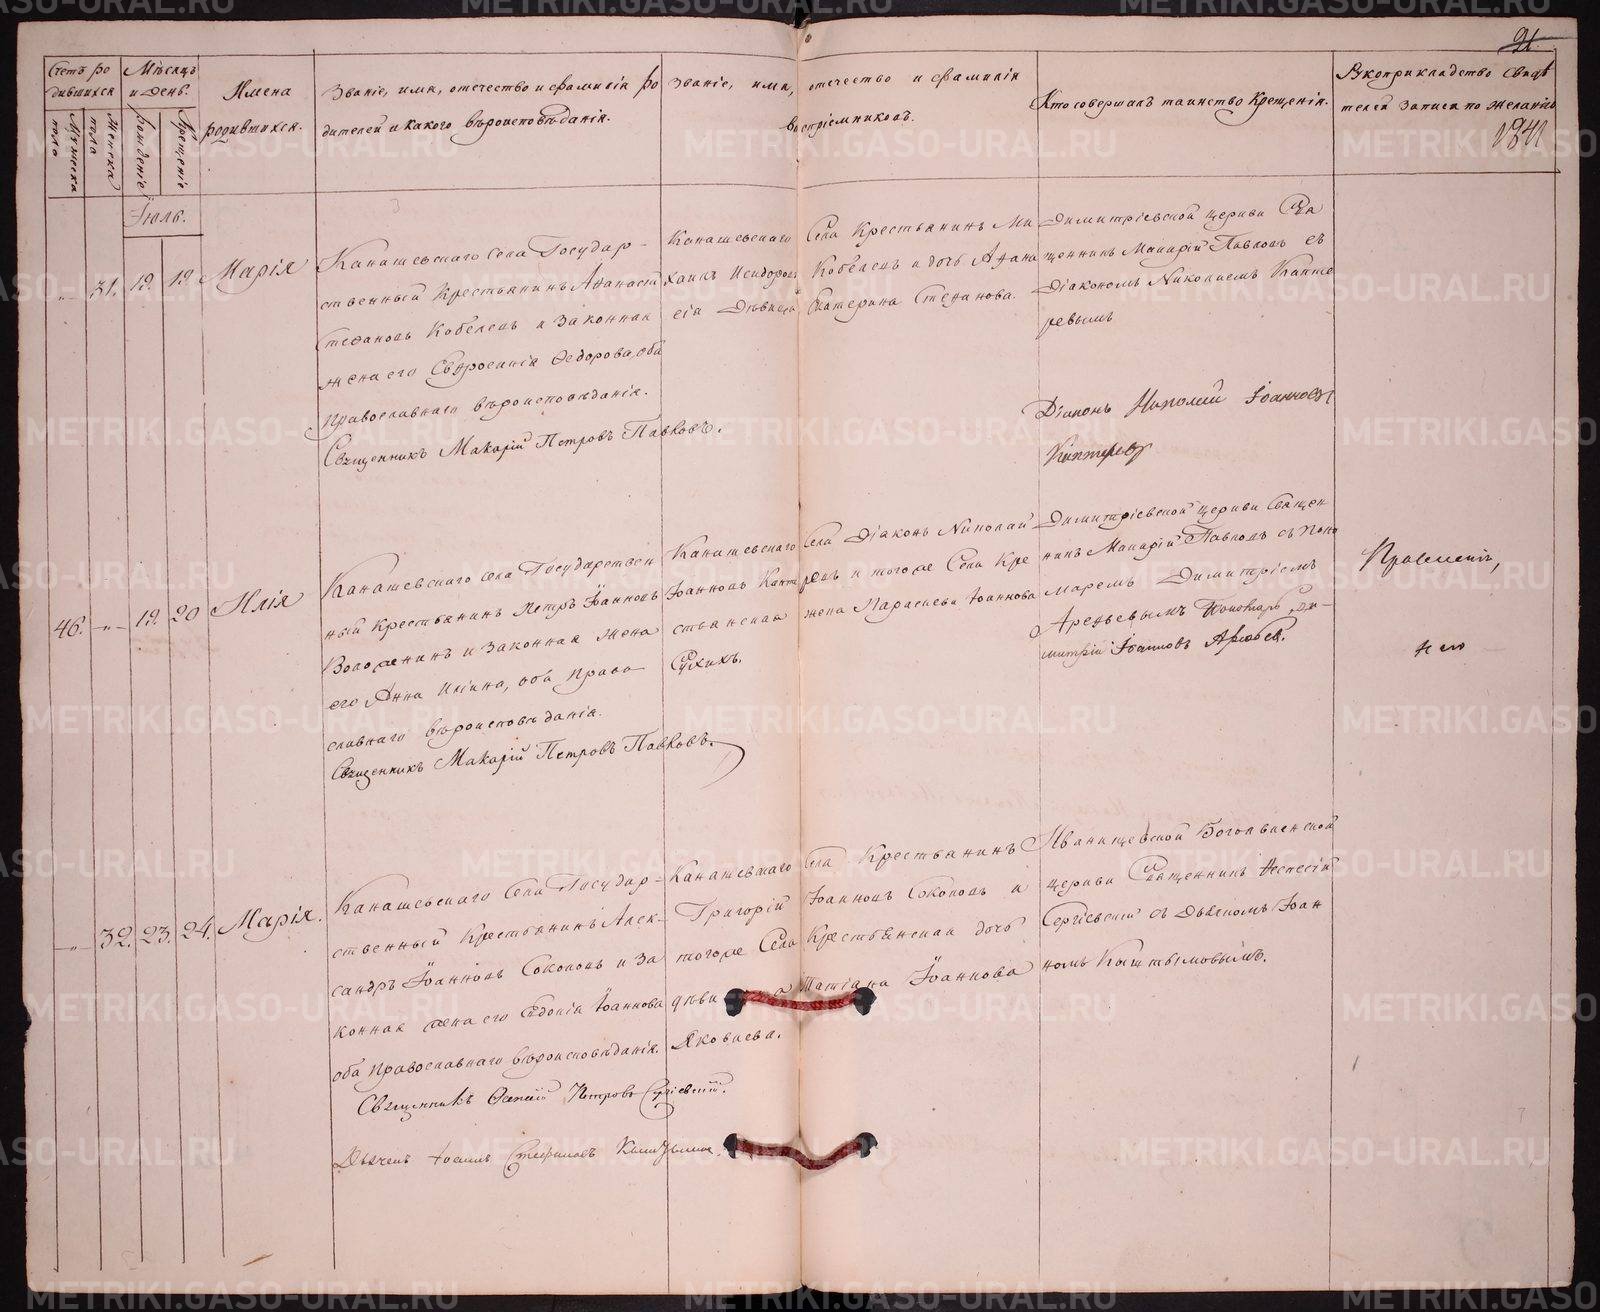 91
941
Счетъ ро
дившихся
Мужеска
пола
Женска
пола
Мѣсяцъ
и день.
рожденіе
Крещеніе
Имена
родившихся.
Званіе, имя, отечество и фамилія ро
дителей и какого вѣроисповѣданія.
Званіе, имя, отечество и фамилія
воспріемниковъ.
Кто совершалъ таинство Крещенія.
Рукоприкладство свидѣ
телей записи по желанію
Іюль.
31. 19. 19. Марія
Канашевскаго села Государ-
ственный Крестьянинъ Афанасій
Стефановъ Кобелевъ и законная
жена его Евфросинія Федорова, оба
Православнаго вѣроисповѣданія.
Священникъ Макарій Петровъ Павловъ.
Канашевскаго села Крестьянинъ Ми
хаилъ Исидоровъ Кобелевъ и дочь Афана
сія Дѣвица Екатерина Стефанова.
Димитріевской церкви Свя
щенникъ Макарій Павловъ съ
Діакономъ Николаемъ Кантe
ревымъ
Діаконъ Николай Іоанновъ
Кантеревъ
46. 19. 20 Илія
Канашевскаго села Государствен
ный Крестьянинъ Петръ Іоанновъ
Воложенинъ и законная жена
его Анна Иліина, оба Право
славнаго вѣроисповѣданія.
Священникъ Макарій Петровъ Павловъ.
Канашевскаго села Діаконъ Николай
Іоанновъ Канте ревъ и тогоже Села Кре
стьянская жена Параскева Іоаннова
Сухихъ.
Димитріевской церкви Священ
никъ Макарій Павловъ съ Поно
маремъ Димитріемъ
Арефьевымъ Пономарь Ди-
митрій Іоанновъ Арефьев.
32. 23. 24. Марія.
Канашевскаго Села Государ-
ственный Крестьянинъ Алек-
сандръ Іоанновъ Соколовъ и за
конная жена его Іоаннова
оба православнаго вѣроисповѣданія.
Священникъ Петровъ Сергіевскій.
Дьячекъ Іоаннъ Стефановъ
Канашевскаго села Крестьянинъ
Григорій Іоанновъ Соколовъ и
тогоже Села Крестьянская дочь
дѣви а Татіана Іоаннова
Яковлева.
Иванищевской Богоявленской
церкви Священникъ
Сергіевскій съ Дьячкомъ Іоан
номъ Кыштымовымъ.
METRIKI.GASO-URAL.RU